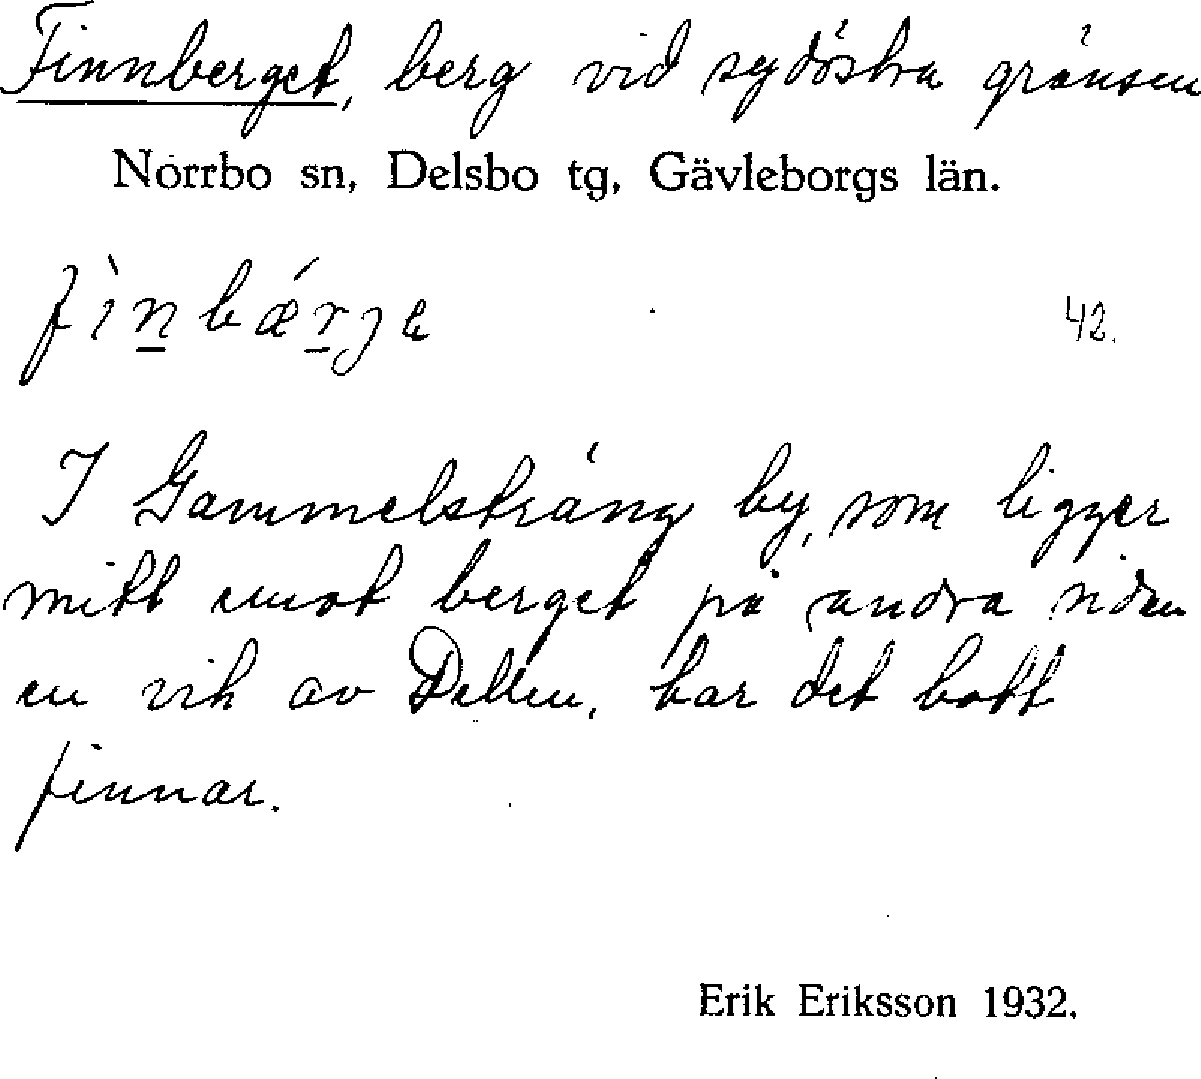 Finnberget, berg vid sydöstra gränsen
Norrbo sn, Delsbo tg, Gävleborgs län.
fìn̲bǽr̲je
42.
I Gammelsträng by, som ligger
mitt emot berget på andra sidan
en vik av Dellen, har det bott
finnar.
Erik Eriksson 1932.